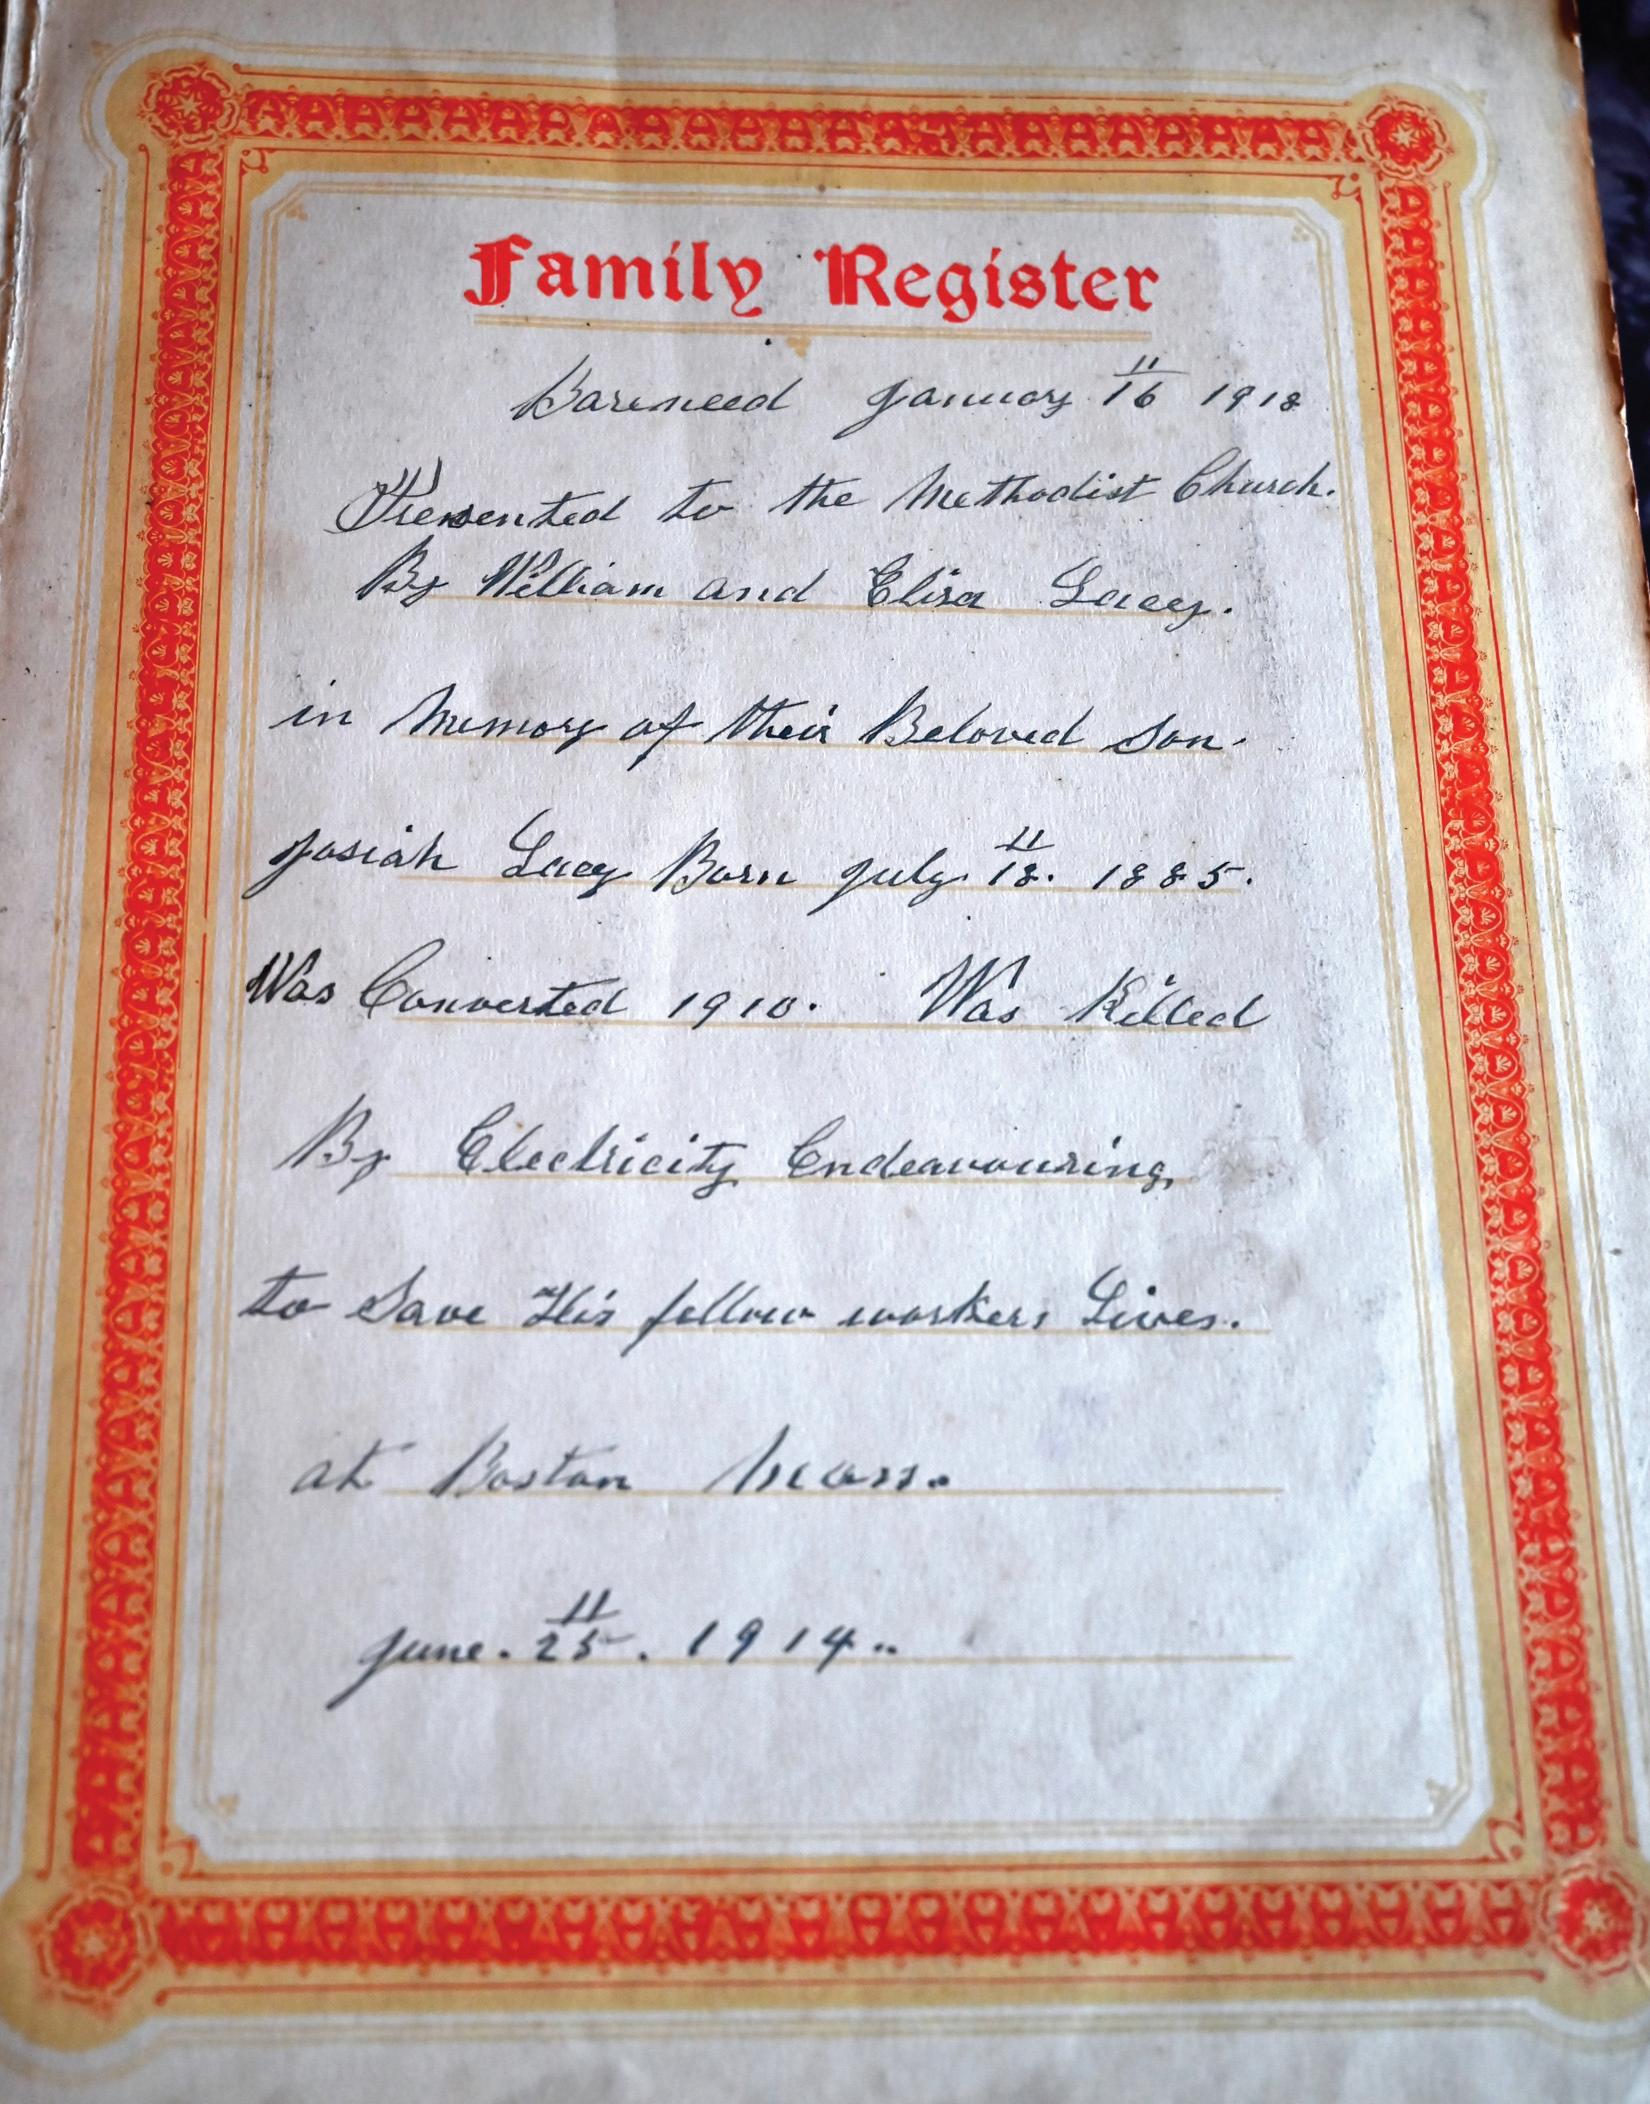 Family Register
Bareneed January 16" 1918
Presented to the Methodist Church.
By William and Eliza Lacey.
in Memory of their Beloved Son.
Josiah Lacey Born July 18". 1885.
Was Converted 1910. Was Killed
By Electricity Endeavouring,
to Save His fellow workers Lives.
at Boston Mass.
June. 25". 1914..